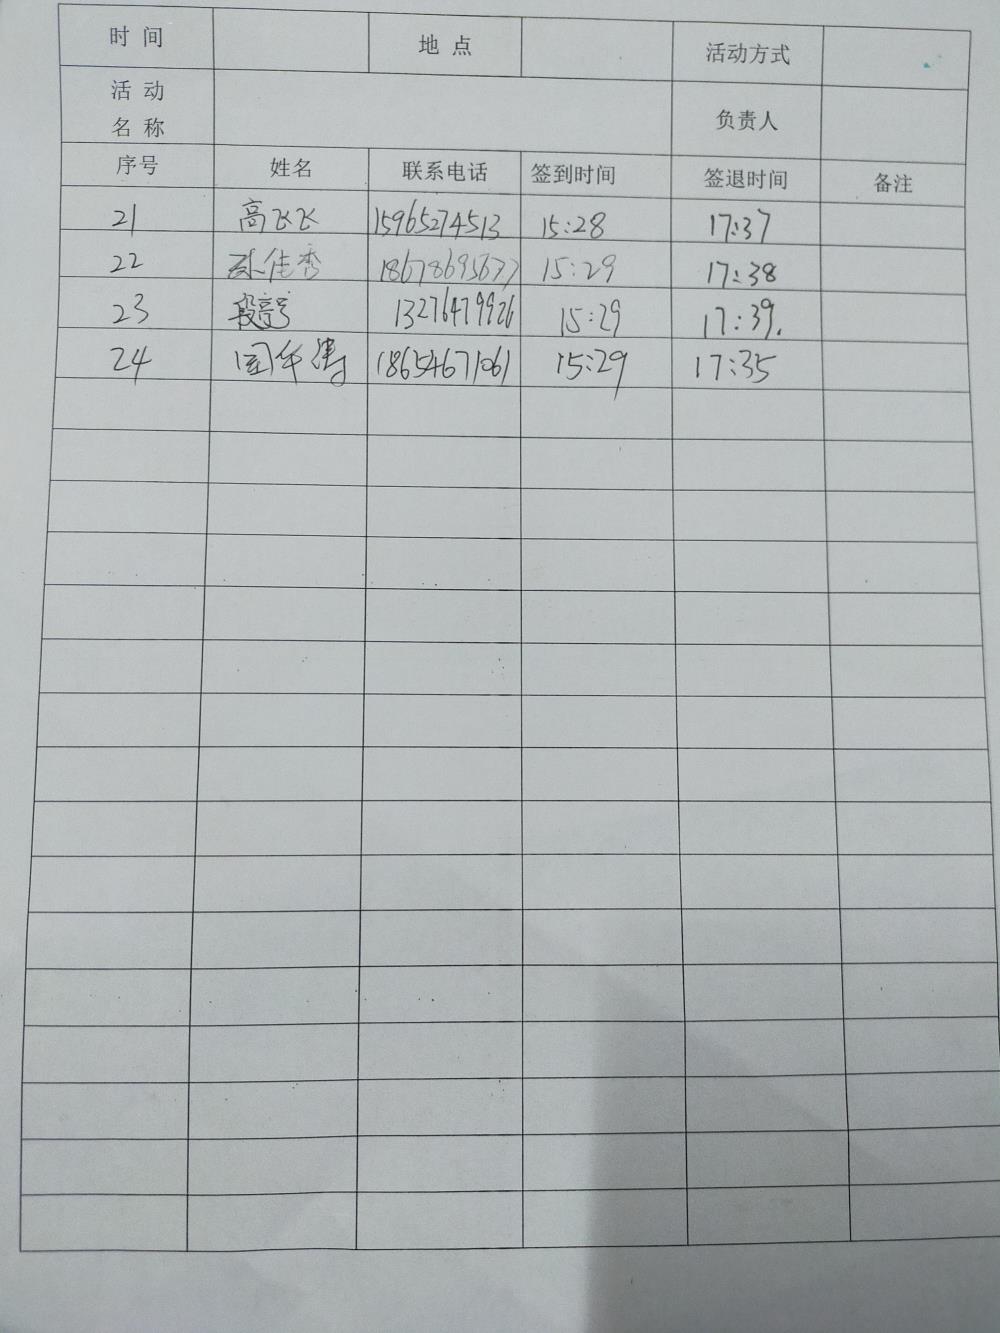 时 间 地 点 活动方式
活 动
名 称 负责人
序号 姓名 联系电话 签到时间 签退时间 备注
21 高飞飞 15965274513 15:28 17:37
22 孙佳秀 15:29 17:38
23 段亭亭 13276479926 15:29 17:39.
24 18654671061 15:29 17:35